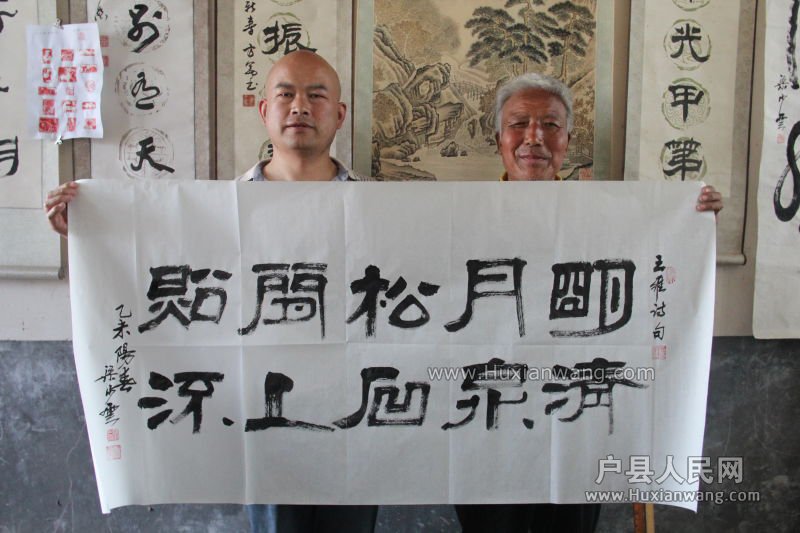 别有天
振
光甲第
王维诗句
明月松間照
清泉石上流
乙未陽春
www.Huxianwang.com
户县人民网
www.Huxianwang.com